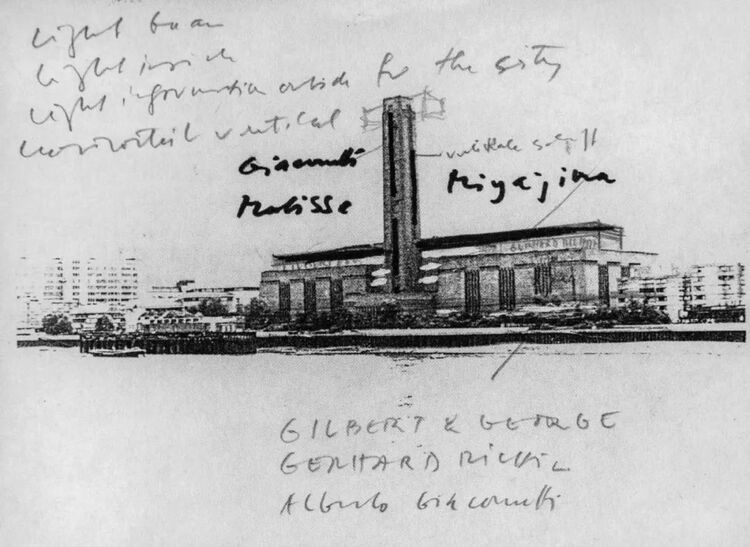 light beam
light inside
light information outside for the city
horizontal vertical
Giacometti
Matisse
Miyajima
GERHARD RICHT
GILBERT & GEORGE
GERHARD RICHTER
Alberto Giacometti